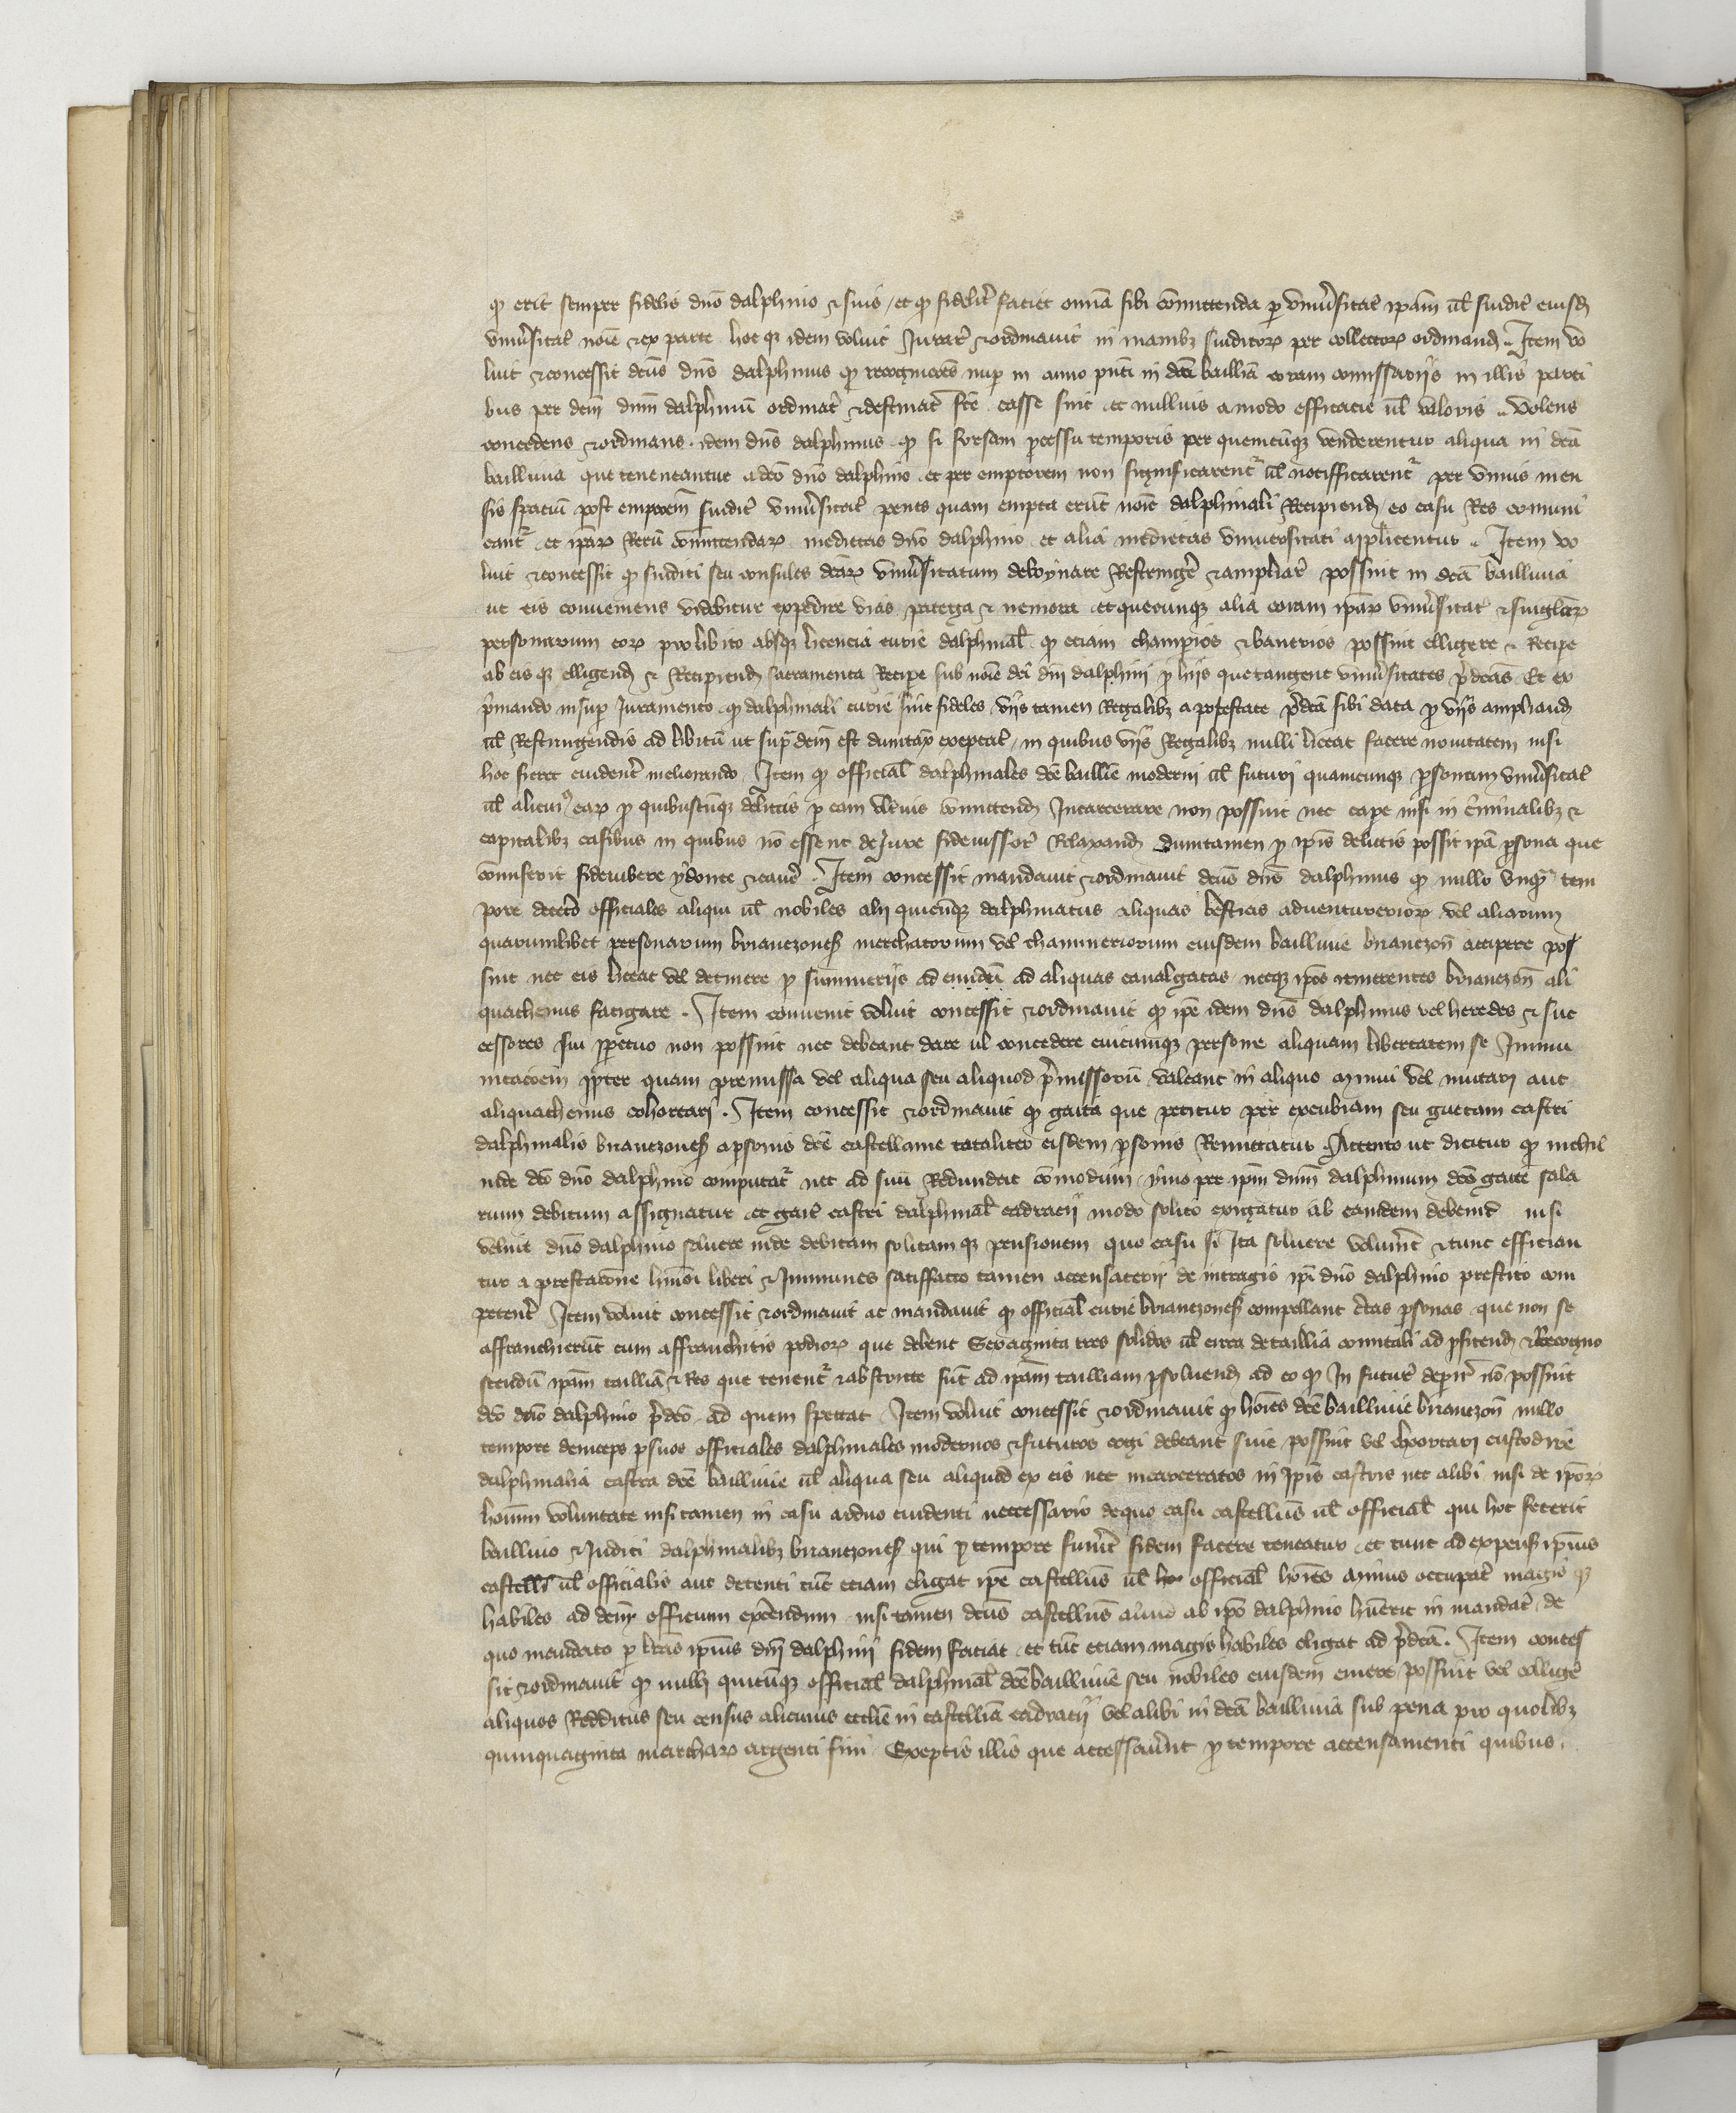 qꝫ erit semper fidelis dno dalphino & suis et qꝫ fidelit faciet omia sibi comittenda p vniusitat ipam ul sindic eiusd
vniusitat noie & ex parte hoc qꝫ idem voluit Jurar & ordinauit in manibꝫ sindicoꝝ per collectoꝝ ordinand Item vo
luit & concessit dcus dns dalphinus qꝫ recognicoes nup in anno pnti in dca baillia coram comissariis in illis parti
bus per dcm dnm dalphinu ordinat & destinat fce casse sint et nullius amodo efficacie ul valoris Volens
concedens & ordinans idem dns dalphinus qꝫ si forsam pcessu temporis per quemcuqꝫ venderentur aliqua in dca
bailliua que teneneantur a dco dno dalphino et per emptorem non significarent ul notifficarent per vnius men
sis spaciu post empcoem sindic vniusitat penes quam empta erut noie dalphinali Recipiend eo casu Res comini
cant et ipaꝝ Reru comittendaꝝ medietas dno dalphino et alia medietas vniuersitati applicentur Item vo
luit & concessit qꝫ sindici seu consules dcaꝝ vniusitatum deboynare Restringe & ampliar possint in dca bailliua
ut eis conueniens videbitur expedire vias patega & nemora et quecunqꝫ alia coram ipaꝝ vniusitat & singlaꝝ
personarum eoꝝ pro libito absqꝫ licencia curie dalphinal qꝫ eciam champios & banerios possint elligere & Recipe
ab eis qꝫ elligend & Recipiend sacramenta Recipe sub noie dci dni dalphini p hiis que tangent vniusitates pdcas Et ex
pmando insup Juramento qꝫ dalphinali curie sint fideles viis tamen Regalibꝫ a potestate pdca sibi data p viis ampliand
ul Restringendis ad libitu ut supra dcm est dumtax exeptat in quibus viis Regalibꝫ nulli liceat facere nouitatem nisi
hoc fieret euident meliorando Item qꝫ official dalphinales dce baillie moderni ul futuri quamcunqꝫ psonam vniusitat
ul alicui eaꝝ p quibuscuqꝫ delictis p eam comittend Incarcerare non possint nec cape nisi in criminalibꝫ &
capitalibꝫ casibus in quibus no essent de Jure fideiussor Relaxand dumtamen p ipis delictis possit ipa psona que
comiserit fideiubere ydonee & cauer Item concessit mandauit & ordinauit dcus dns dalphinus qꝫ nullo vnqꝫ tem
pore decetero officiales aliqui ul nobiles alii quicuqꝫ dalphinatus aliquas bestias aduentureriorꝝ vel aliarum
quarumlibet personarum brianczones merchatorum vel chamineriorum eiusdem bailliuie brianczon accipere pos
sint nec eis liceat vel detinere p summeriis ad eundu ad aliquas caualgatas necqꝫ ipos comerentes brianczon ali
quathenus fatigare Item conuenit voluit concessit & ordinauit qꝫ ipe idem dns dalphinus vel heredes & suc
cessores sui ppetuo non possint nec debeant dare ul concedere cuicumqꝫ persone aliquam libertatem se Immu
nitacoem ppter quam premissa vel aliqua seu aliquod pmissoru valeant in aliquo minui vel mutari aut
aliquathenus cohortari Item concessit & ordinauit qꝫ gaita que petitur per excubiam seu guetam castri
dalphinalis brianczones a psonis dce castellanie totaliter eisdem psonis Remitatur Attento ut dicitur qꝫ nichil
inde dco dno dalphino computat nec ad suu Redundat comodum ymo per ipm dnm dalphinum dce gaite sala
rium debitum assignatur et gait castri dalphinal cadracii modo solito exigatur ab eamdem debentt nisi
veline dno dalphino soluere inde debitam solitam qꝫ pensionem quo casu si Ita soluere voluint & tunc effician
tur a prestacone hmoi liberi & Immunes satisfacto tamen accensatorii de intragio ipi dno dalphino prestito com
petent Item voluit concessit & ordinauit ac mandauit qꝫ official curie brianczones compellant ctas psonas que non se
affranchierut cum affranchitis prdioꝝ que debent Sexaginta tres solidos ul circa de taillia comitali ad psitend & Recogno
scendu ipam tailliā & Res que tenent & abstricte sut ad ipam tailliam psoluend ad eo qꝫ In futur deperir no possint
dco dno dalphino pdco ad quem spectat Item voluit concessit & ordinauit qꝫ hoies dce bailliuie brianczon nullo
tempore deinceps p suos officiales dalphinales modernos & futuros cogi debeant siue possint vel exhortari custodire
dalphinalia castra dce bailliuie ul aliqua seu aliquid ex eis nec incarceratos in ipis castris nec alibi nisi de ipoꝝ
hoium voluntate nisi tamen in casu arduo euidenti neccessario de quo casu castellus ul official qui hoc fecerit
bailliuio & Judici dalphinalibꝫ brianczones qui p tempore fuint fidem facere teneatur et tunc ad expens ipius
castelli ul officialis aut detenti tuc eciam eligat ipe castellus ul official hoies minus occupat magis qꝫ
habiles ad dcm officium excendum nisi tamen dcus castellus aliud ab ipo dalphino huerit in mandat de
quo mandato p lras ipius dni dalphini fidem faciat et tuc eciam magis habiles eligat ad pdca Item conces
sit & ordinauit qꝫ nulli quicuqꝫ official dalphinal dce bailliuie seu nobiles eiusdem emere possint vel collige
aliquos Redditus seu census alicuius ecclie in castellia cadracii vel alibi in dca bailliuia sub pena pro quolibꝫ
quinquaginta marchaꝝ argenti fini Exeptis illis que accessauernt p tempore accensamenti quibus